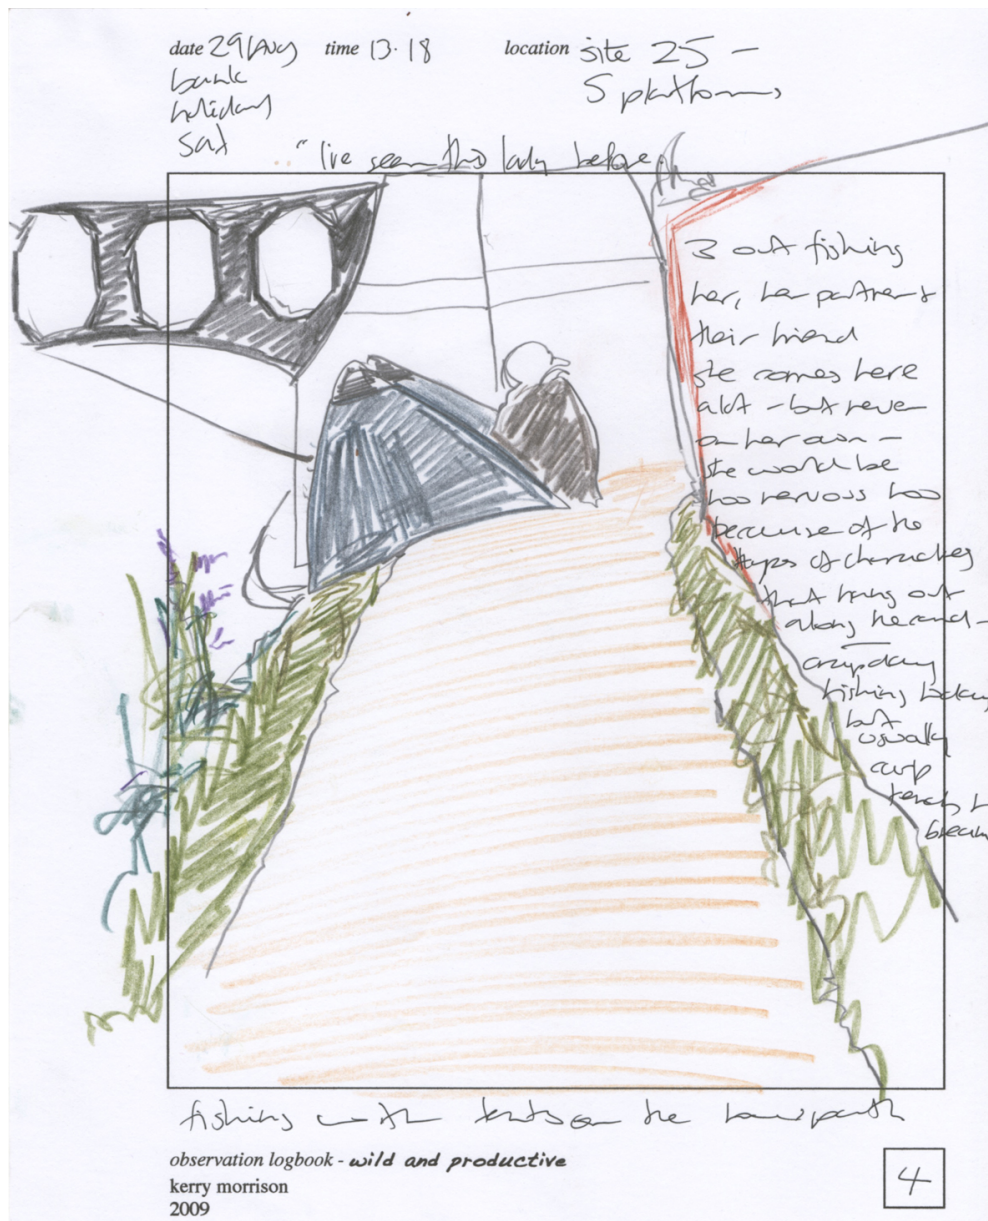 date 29/Aug time 13.18 location site 25 -
bank
holiday
sat
5 platforms
"I've seen this lady before
3 out fishing
her, her partner &
their friend
she comes here
alot - but never
on her own -
she would be
too nervous too
because of the
types of characters
that hang out
along the canal -
crap day
fishing today
but
usually
carp
tench
bream
fishing with tents on the towpath
observation logbook - wild and productive
kerry morrison
2009
4